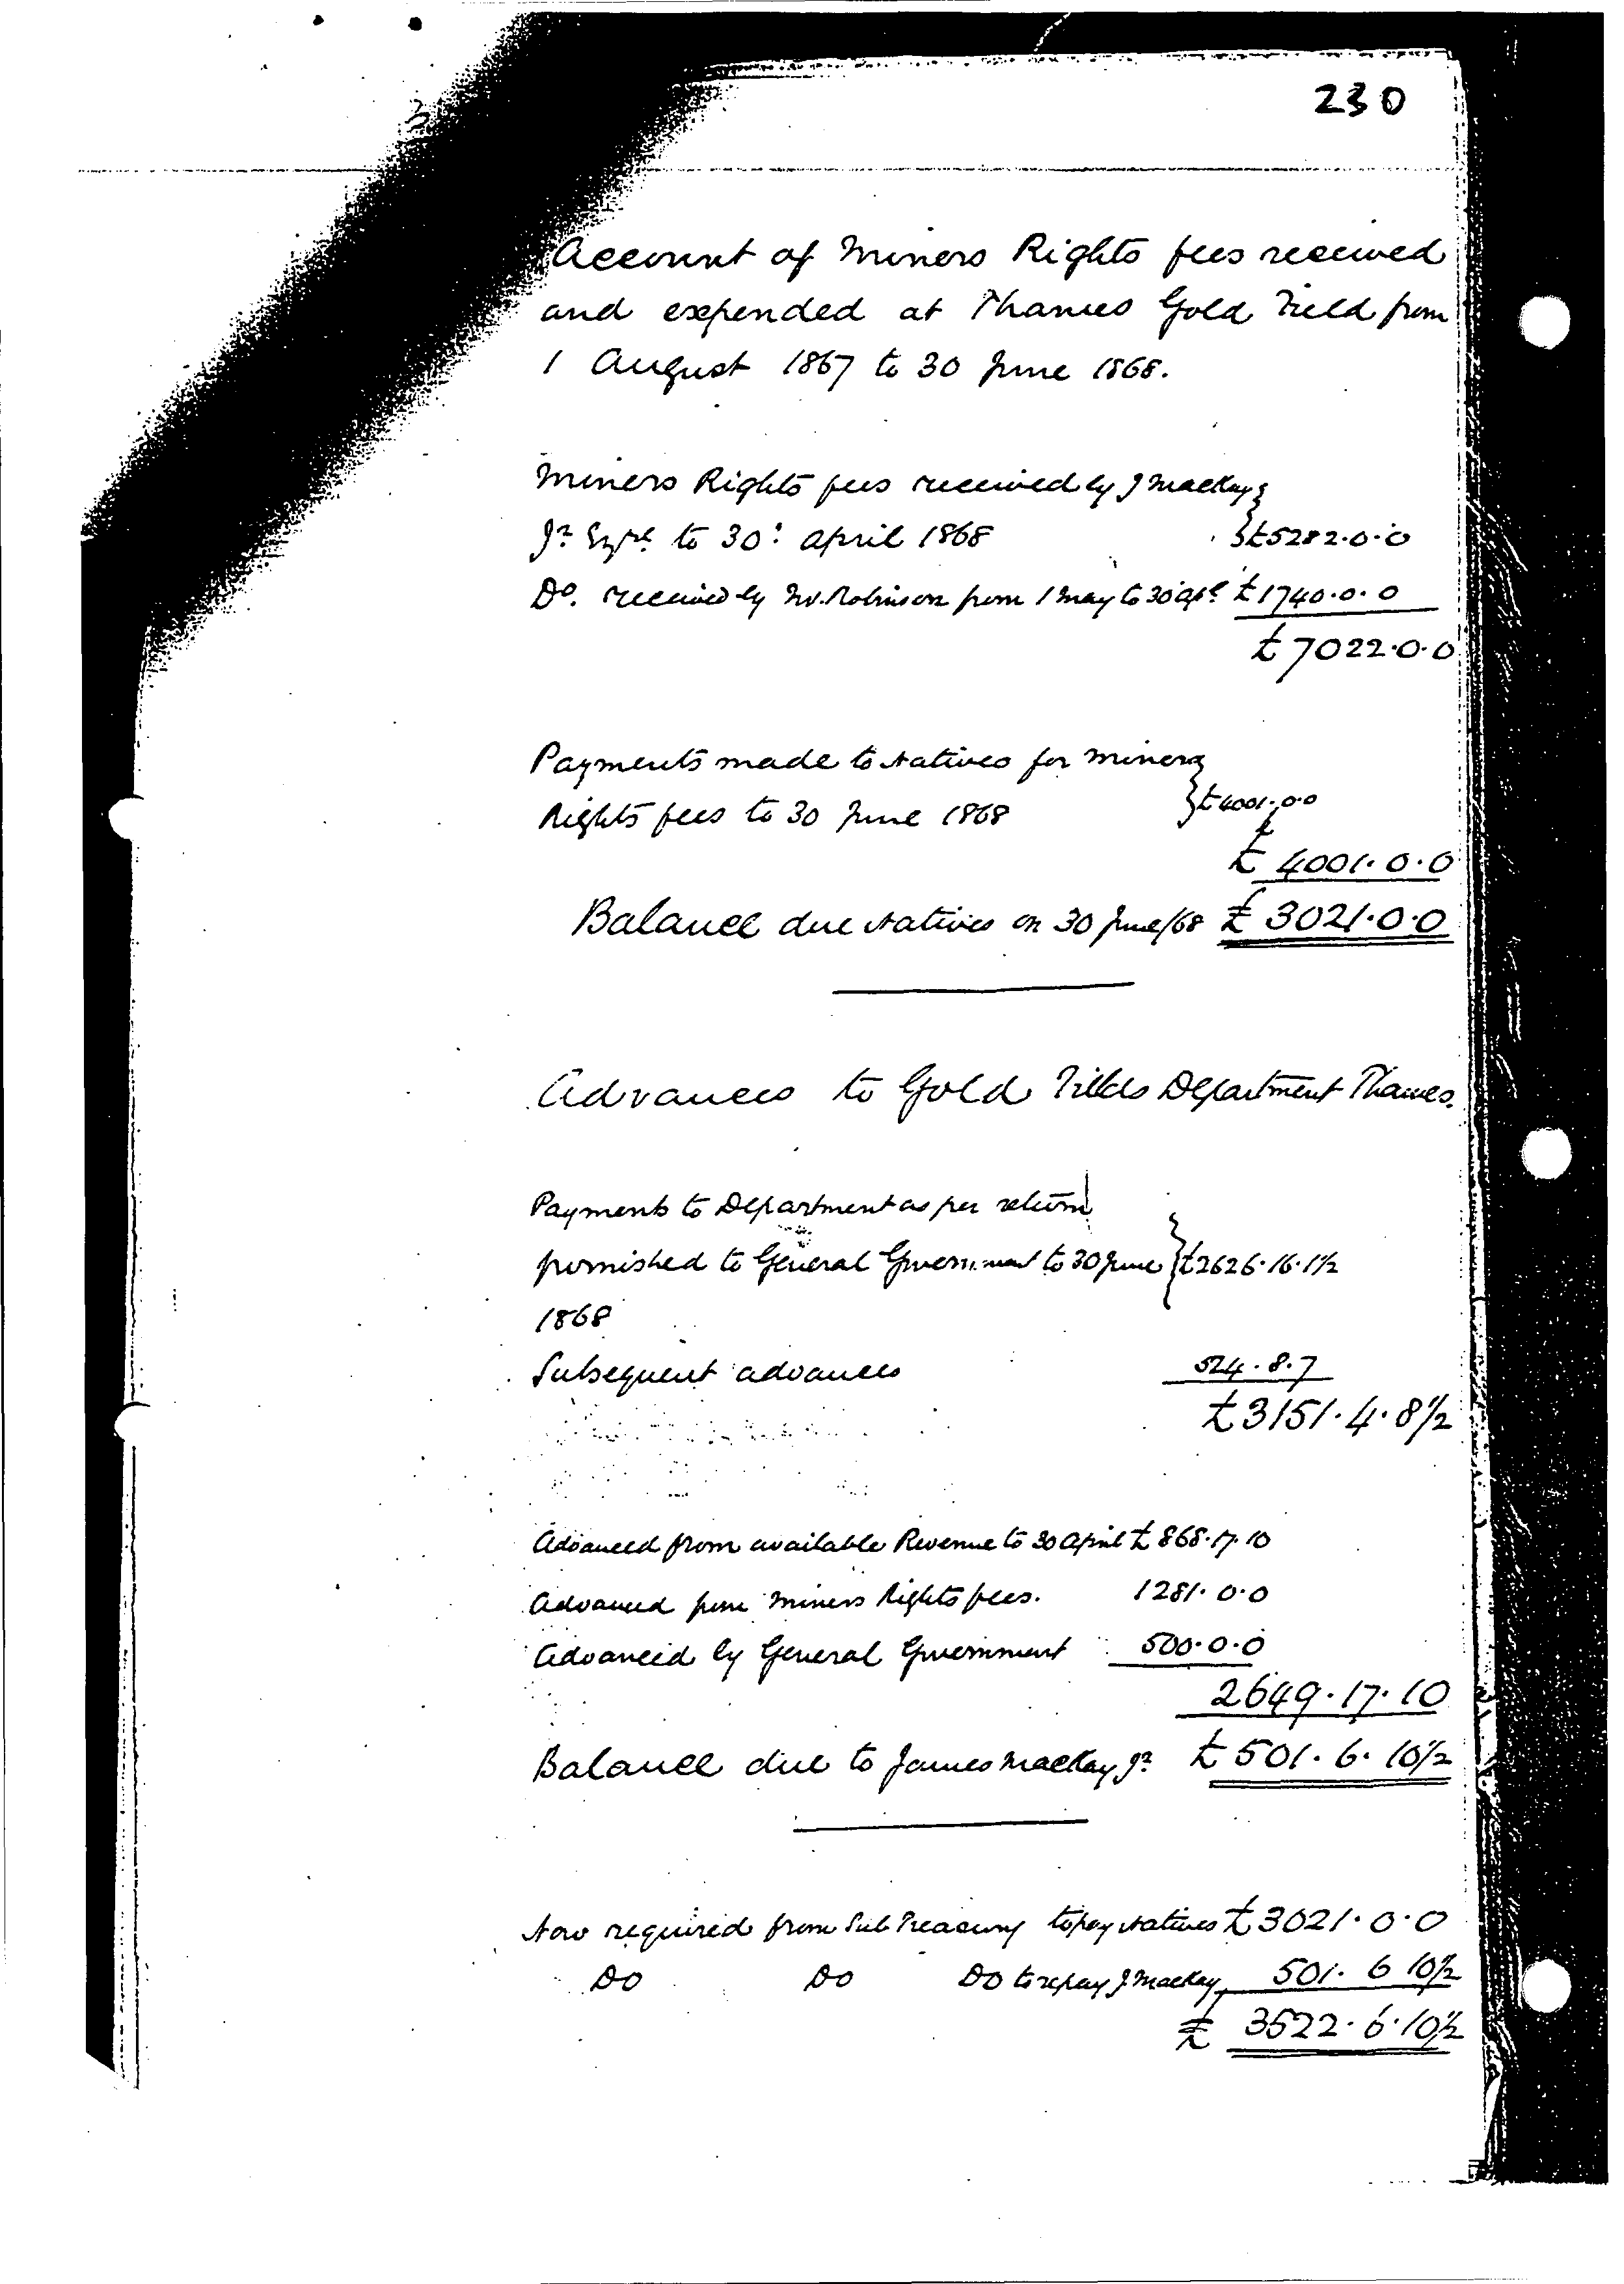 230
Account of Miners Rights fees received
and expended at Thames Gold Field from
1 August 1867 to 30 June 1868.
Miners Rights fees received by J Mackay
Jr. Esqre. to 30: April 1868 £5282.0.0
Do. received by W. Robinson from 1 May to 30 Apl. £1740.0.0
£7022.0.0
Payments made to Natives for Miners
Rights fees to 30 June 1868 £4001.0.0
£ 4001.0.0
Balance due Natives on 30 June/68 £ 3021.0.0
Advances to Gold Fields Department Thames.
Payments to Department as per return
furnished to General Government to 30 June £2626.16.1½
1868
Subsequent advances 524.8.7
£3151.4.8½
Advanced from available Revenue to 30 April £868.17.10
Advanced from Miners Rights fees. 1281.0.0
Advanced by General Government 500.0.0
2649.17.10
Balance due to James Mackay Jr. £501.6.10½
Now required from Sub Treasury to pay Natives £3021.0.0
Do Do Do to repay J Mackay 501.6 10½
£ 3522.6.10½